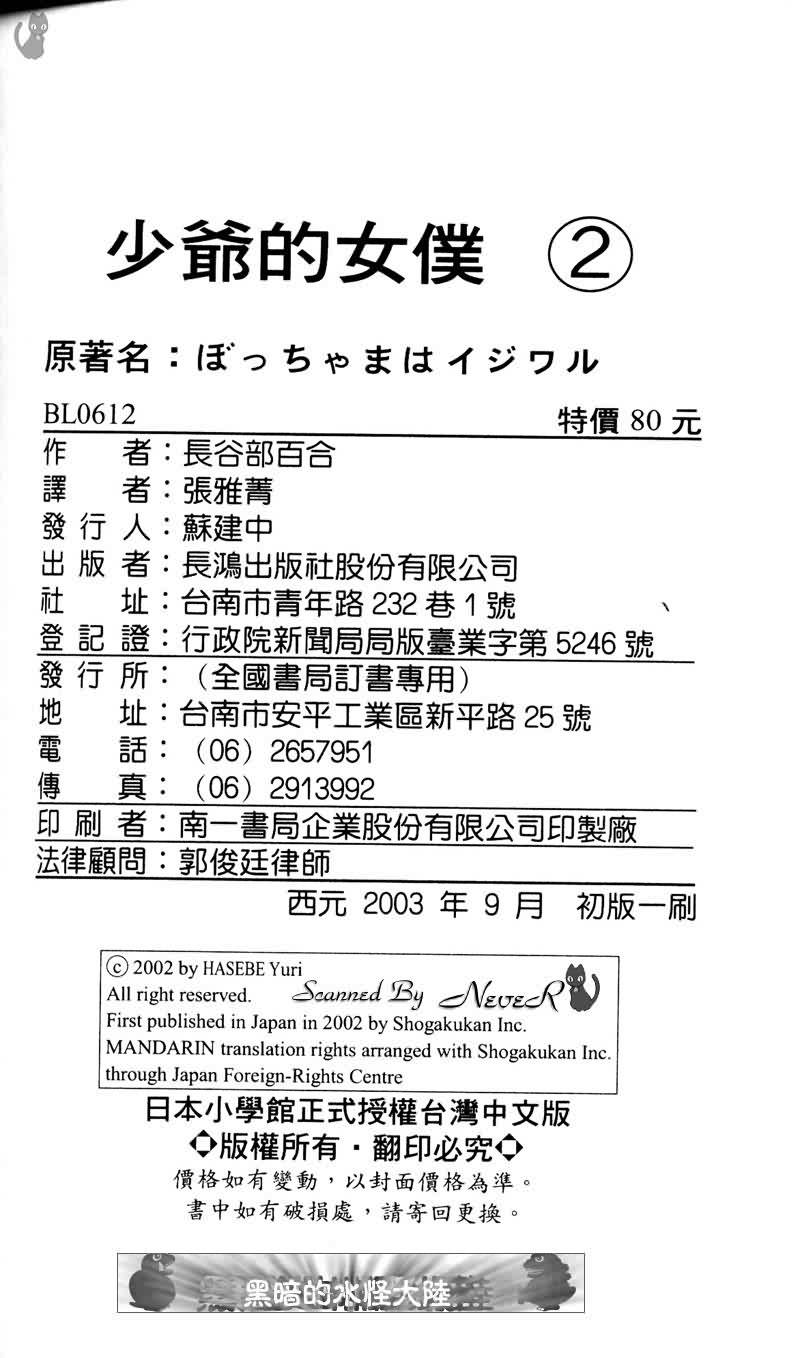 少爺的女僕 ②
原著名：ぼっちゃまはイジワル
BL0612 特價 80 元
作者：長谷部百合
譯者：張雅菁
發行人：蘇建中
出版者：長鴻出版社股份有限公司
社址：台南市青年路 232 巷 1 號
登記證：行政院新聞局局版臺業字第 5246 號
發行所：（全國書局訂書專用）
地址：台南市安平工業區新平路 25 號
電話：（06）2657951
傳真：（06）2913992
印刷者：南一書局企業股份有限公司印製廠
法律顧問：郭俊廷律師
西元 2003 年 9 月 初版一刷
© 2002 by HASEBE Yuri
All right reserved.
Scanned By NeveR
First published in Japan in 2002 by Shogakukan Inc.
MANDARIN translation rights arranged with Shogakukan Inc.
through Japan Foreign-Rights Centre
日本小學館正式授權台灣中文版
◇版權所有・翻印必究◇
價格如有變動，以封面價格為準。
書中如有破損處，請寄回更換。
黑暗的水怪大陸